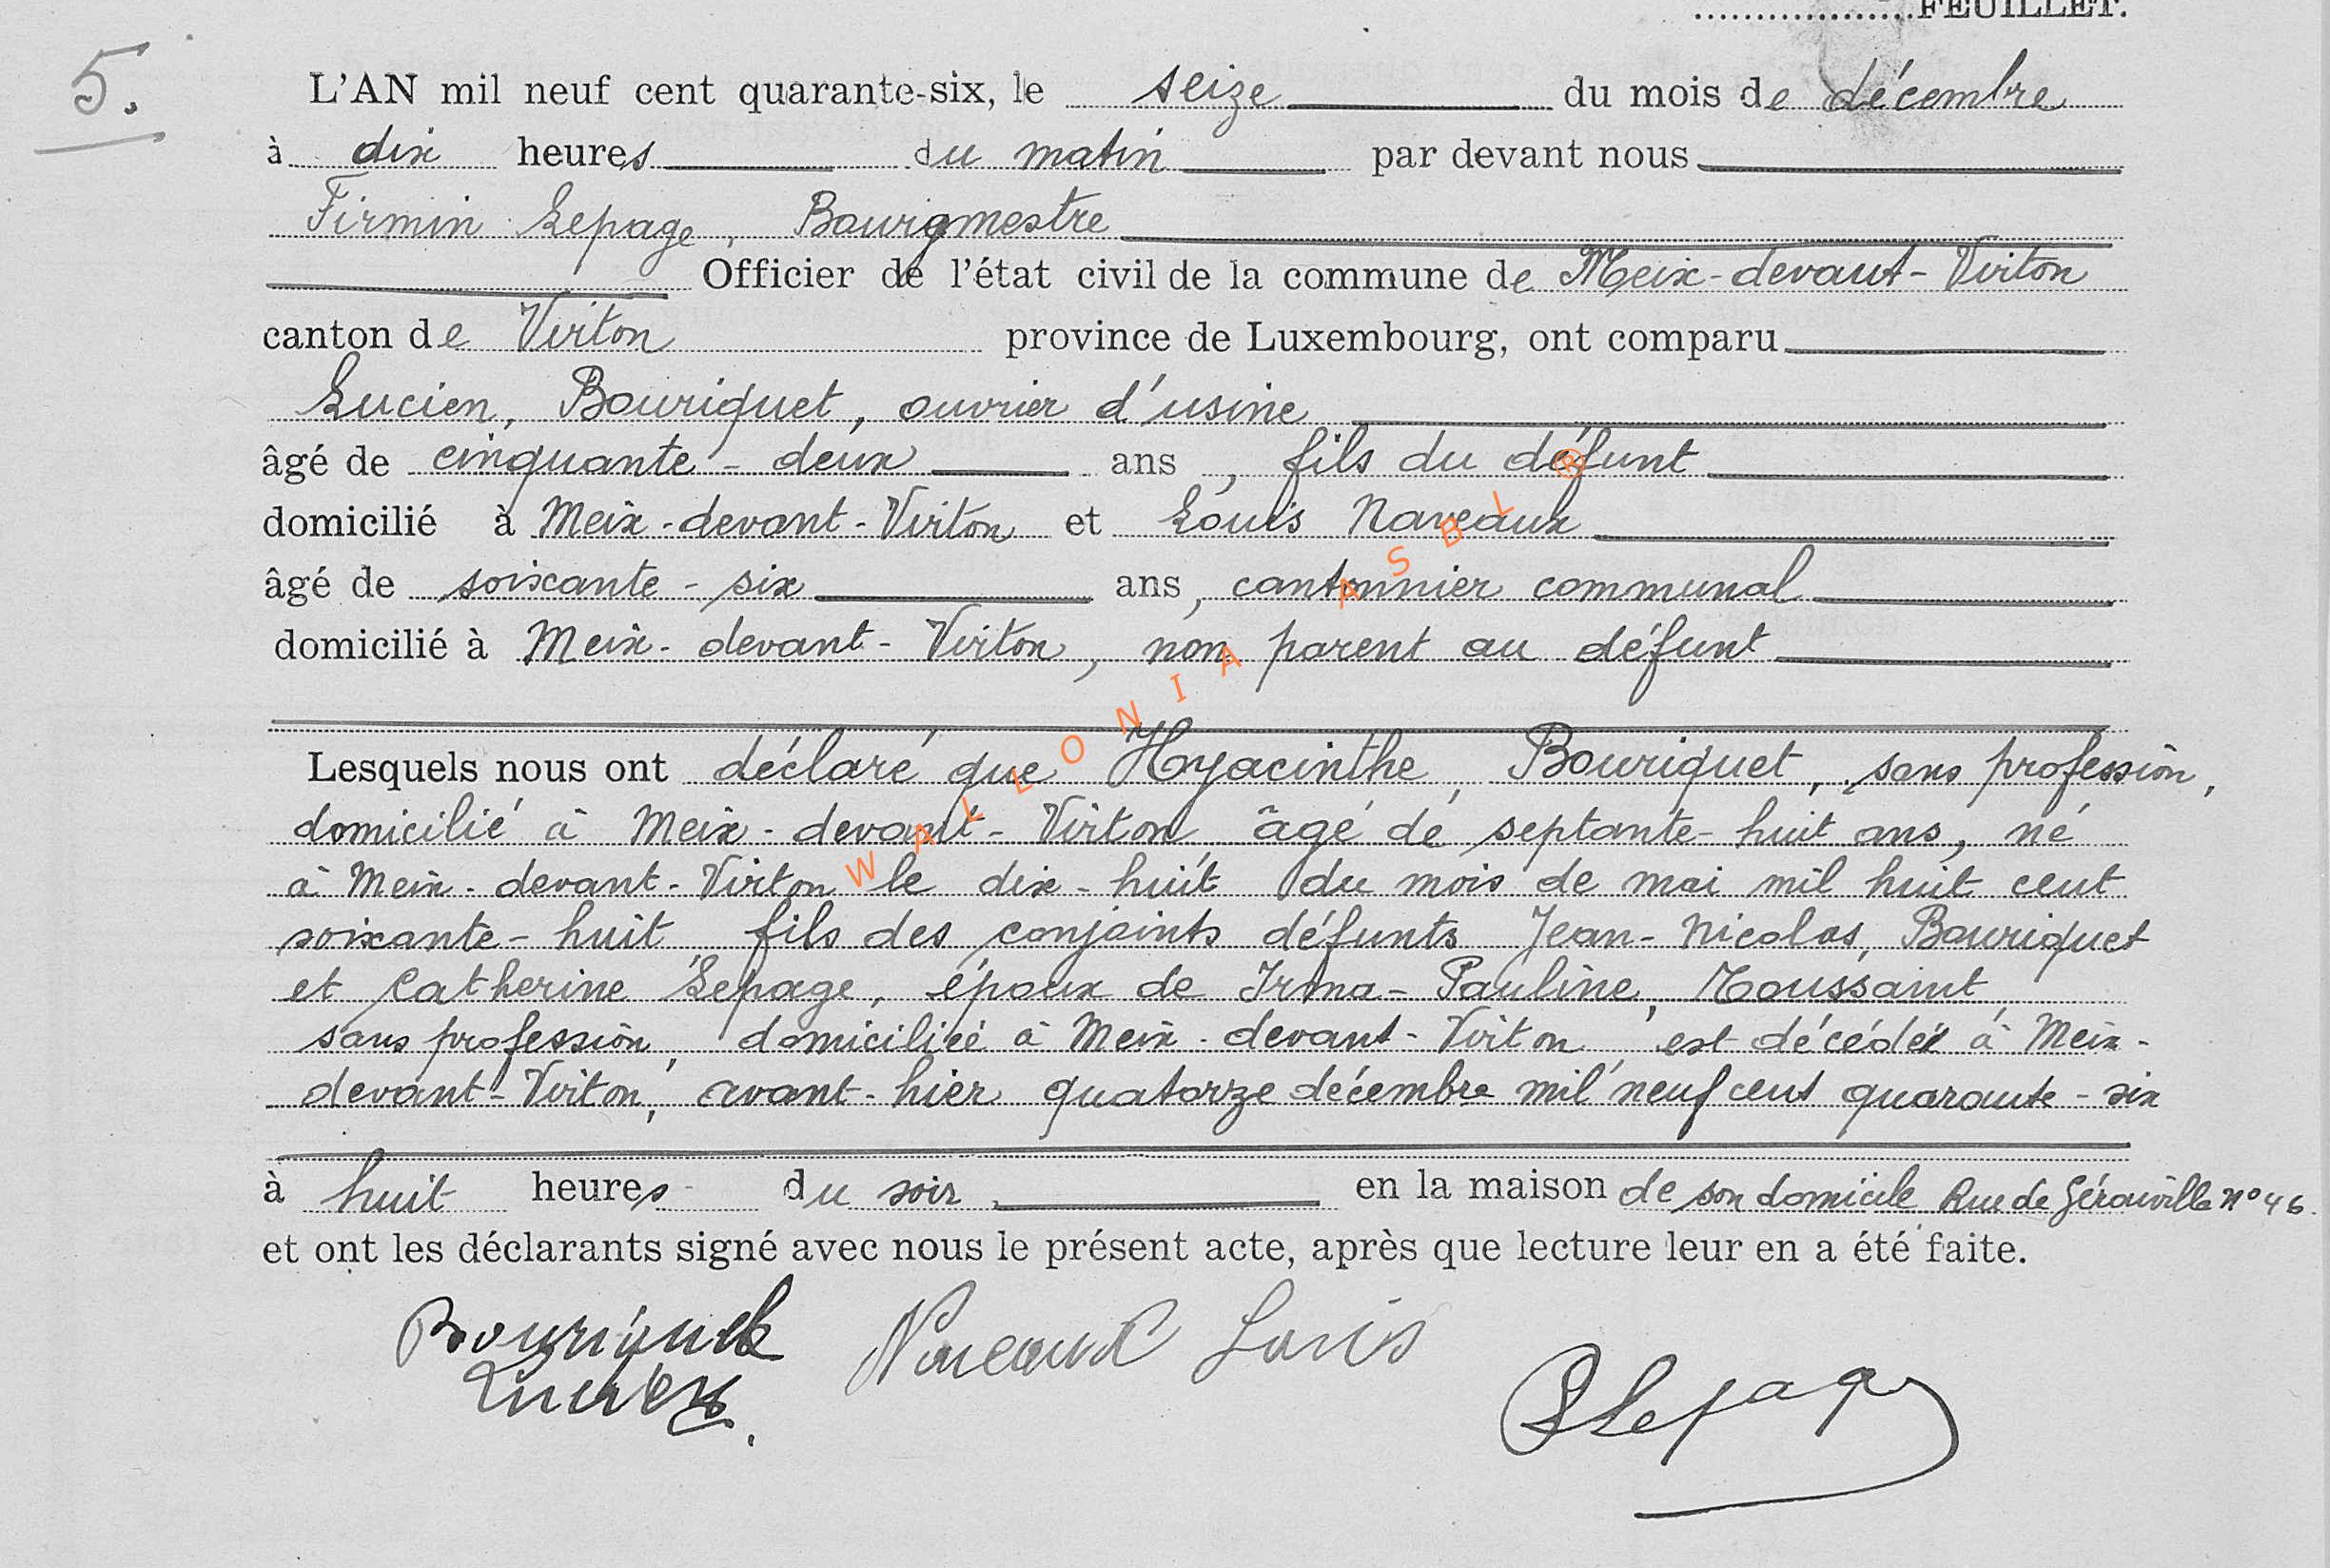 FEUILLET.
5.
L'AN mil neuf cent quarante-six, le seize du mois de décembre
à dix heures du matin par devant nous
Firmin Lepage, Bourgmestre
Officier de l'état civil de la commune de Meix-devant-Virton
canton de Virton province de Luxembourg, ont comparu
Lucien, Bouriquet, ouvrier d'usine
âgé de cinquante-deux ans, fils du défunt
domicilié à Meix-devant-Virton et Louis Naveaux
âgé de soixante-six ans, cantonnier communal
domicilié à Meix-devant-Virton, non parent au défunt
Lesquels nous ont déclaré que Hyacinthe, Bouriquet, sans profession,
domicilié à Meix-devant-Virton âgé de septante-huit ans, né
à Meix-devant-Virton le dix-huit du mois de mai mil huit cent
soixante-huit, fils des conjoints défunts Jean-Nicolas, Bouriquet
et Catherine Lepage, époux de Irma-Pauline, Toussaint,
sans profession, domiciliée à Meix-devant-Virton, est décédé à Meix-
devant-Virton, avant-hier quatorze décembre mil neuf cent quarante-six
à huit heures du soir en la maison de son domicile Rue de Gérouville n° 46.
et ont les déclarants signé avec nous le présent acte, après que lecture leur en a été faite.
Bouriquet Naveaux Louis
Lucien.
Lepage
WALLONIA ASBL ®